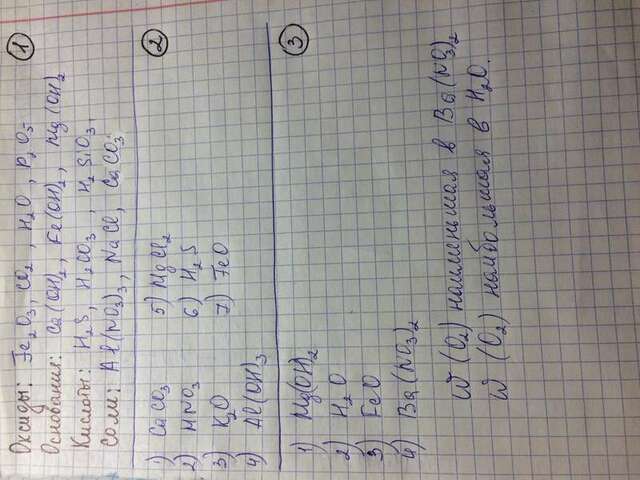 ①
Оксиды: Fe2O3, CO2, H2O, P2O5
Основания: Ca(OH)2, Fe(OH)2, Mg(OH)2
Кислоты: H2S, H2CO3, H2SiO3,
Соли: Al(NO3)3, NaCl, CaCO3
②
1) CaCO3
2) HNO3
3) K2O
4) Al(OH)3
5) MgCl2
6) H2S
7) FeO
③
1) Mg(OH)2
2) H2O
3) FeO
4) Ba(NO3)2
W (O2) наименьшая в Ba(NO3)2
W (O2) наибольшая в H2O.